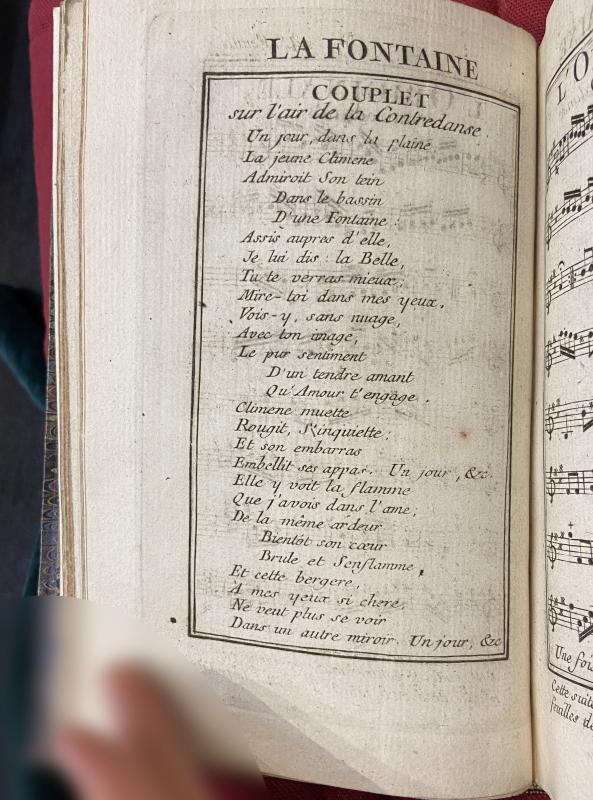 LA FONTAINE
COUPLET
sur l'air de la Contredanse.
Un jour, dans la plaine
La jeune Climene
Admiroit Son tein
Dans le bassin
D'une Fontaine :
Assis aupres d'elle,
Je lui dis : la Belle,
Tu te verras mieux;
Mire-toi dans mes yeux.
Vois-y, sans nuage,
Avec ton image,
Le pur sentiment
D'un tendre amant
Qu'Amour t'engage.
Climene muette
Rougit, S'inquiette;
Et son embarras
Embellit ses appas. Un jour, &c.
Elle y voit la flamme
Que j'avois dans l'ame;
De la même ardeur
Bientôt son cœur
Brule et S'enflamme,
Et cette bergere,
A mes yeux si chere,
Ne veut plus se voir
Dans un autre miroir. Un jour, &c
L'O
Une fois
Cette suite
feuilles de